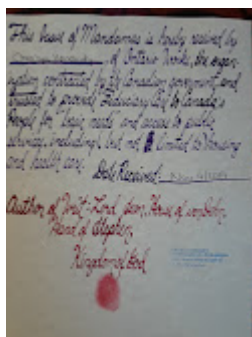 This Issue of Mandamus is hereby received by
of Ontario Works, the organ-
ization contracted by the Canadian government, and
entrusted to provide Fiduciary Aid to Canada's
People for "basic needs" and access to public
services, including but not limited to Housing
and health care.
Date Received:
Author of Writ - Lord Sean, House of von Dehn,
Hand of Stephen,
Kingdom of God